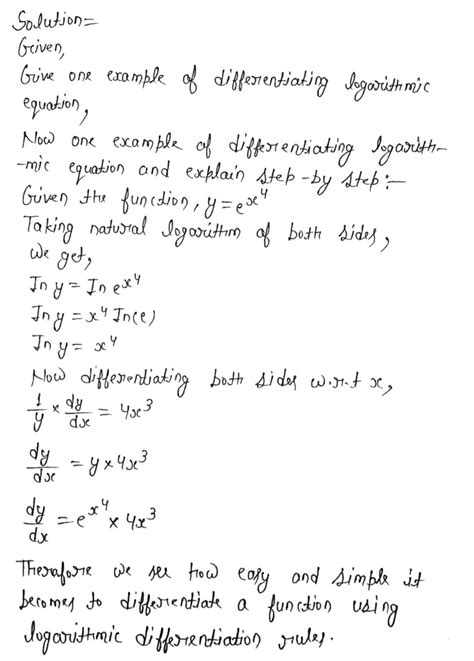 Solution=
Given,
Give one example of differentiating logarithmic
equation,
Now one example of differentiating logarith-
-mic equation and explain step-by step:-
Given the function, y = e^x^4
Taking natural logarithm of both sides,
we get,
In y = In e^x^4
In y = x^4 In(e)
In y = x^4
Now differentiating both sides w.r.t x,
1/y × dy/dx = 4x^3
dy/dx = y × 4x^3
dy/dx = e^x^4 × 4x^3
Therefore we see how easy and simple it
becomes to differentiate a function using
logarithmic differentiation rules.